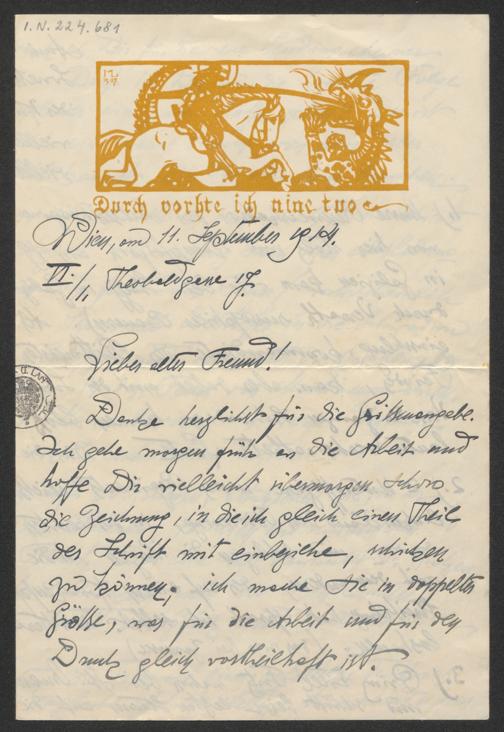 I.N. 224.681
Durch vorhte ich nine tuo
Wien, am 11. September 1914.
VI./1, Theobaldgasse 17.
Lieber alter Freund!
Danke herzlichst für die Größenangabe.
Ich gehe morgen früh an die Arbeit und
hoffe Dir vielleicht übermorgen schon
die Zeichnung, in die ich gleich einen Theil
der Schrift mit einbeziehe, schicken
zu können. ich mache sie in doppelter
Größe, was für die Arbeit und für den
Druck gleich vortheilhaft ist.